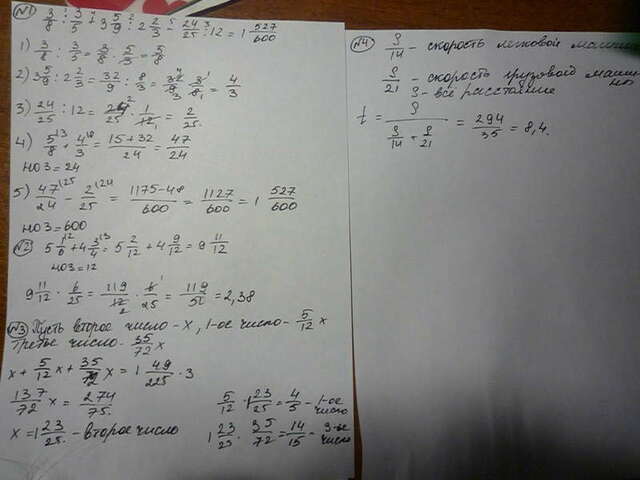 №1) 3/8 : 3/5 + 3 5/9 : 2 2/3 - 24/25 : 12 = 1 527/600
1) 3/8 : 3/5 = 3/8 · 5/3 = 5/8
2) 3 5/9 : 2 2/3 = 32/9 : 8/3 = 32/9 · 3/8 = 4/3
3) 24/25 : 12 = 24/25 · 1/12 = 2/25
4) 5/8 + 4/3 = 15+32/24 = 47/24
НОЗ = 24
5) 47/24 - 2/25 = 1175-48/600 = 1127/600 = 1 527/600
НОЗ = 600
№2 5 1/6 + 4 3/4 = 5 2/12 + 4 9/12 = 9 11/12
НОЗ = 12
9 11/12 · 6/25 = 119/12 · 6/25 = 119/50 = 2,38
№3 Пусть второе число - х, 1-ое число - 5/12 х
Третье число - 35/72 х
х + 5/12 х + 35/72 х = 1 49/225 · 3
137/72 х = 274/75
х = 1 23/25 - второе число
5/12 · 1 23/25 = 4/5 - 1-ое число
1 23/25 · 35/72 = 14/15 - 3-ье число
№4 S/14 - скорость легковой машины
S/21 - скорость грузовой машины
S - все расстояние
t = S / (S/14 + S/21) = 294/35 = 8,4.